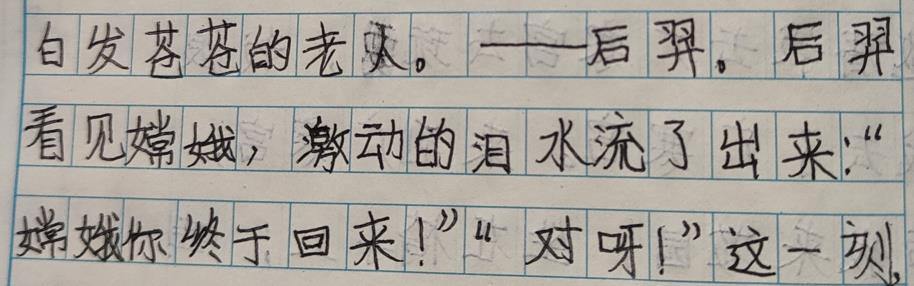 白发苍苍的老人。——后羿。后羿
看见嫦娥，激动的泪水流了出来：“
嫦娥你终于回来！”“对呀！”这一刻，